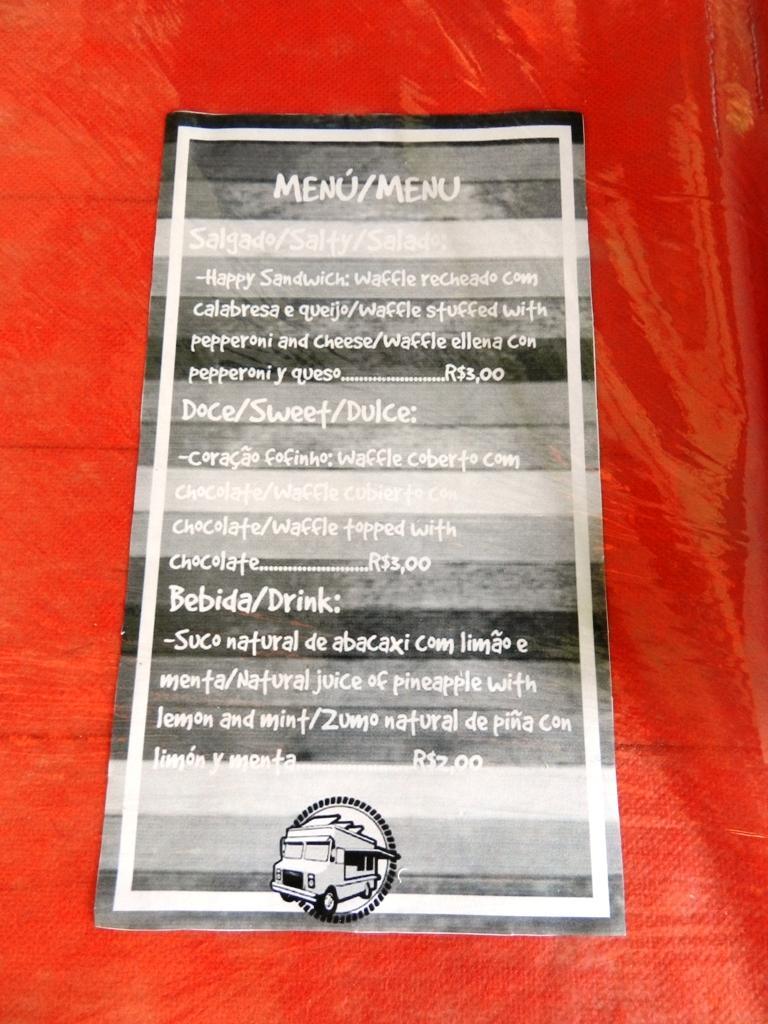 MENÚ/MENU
Salgado/Salty/Salado:
-Happy Sandwich: Waffle recheado com
calabresa e queijo/Waffle stuffed with
pepperoni and cheese/Waffle ellena con
pepperoni y queso......................R$3,00
Doce/Sweet/Dulce:
-Coração fofinho: Waffle coberto com
chocolate/Waffle cubierto con
chocolate/Waffle topped with
chocolate.......................R$3,00
Bebida/Drink:
-Suco natural de abacaxi com limão e
menta/Natural juice of pineapple with
lemon and mint/Zumo natural de piña con
limón y menta.........................R$2,00